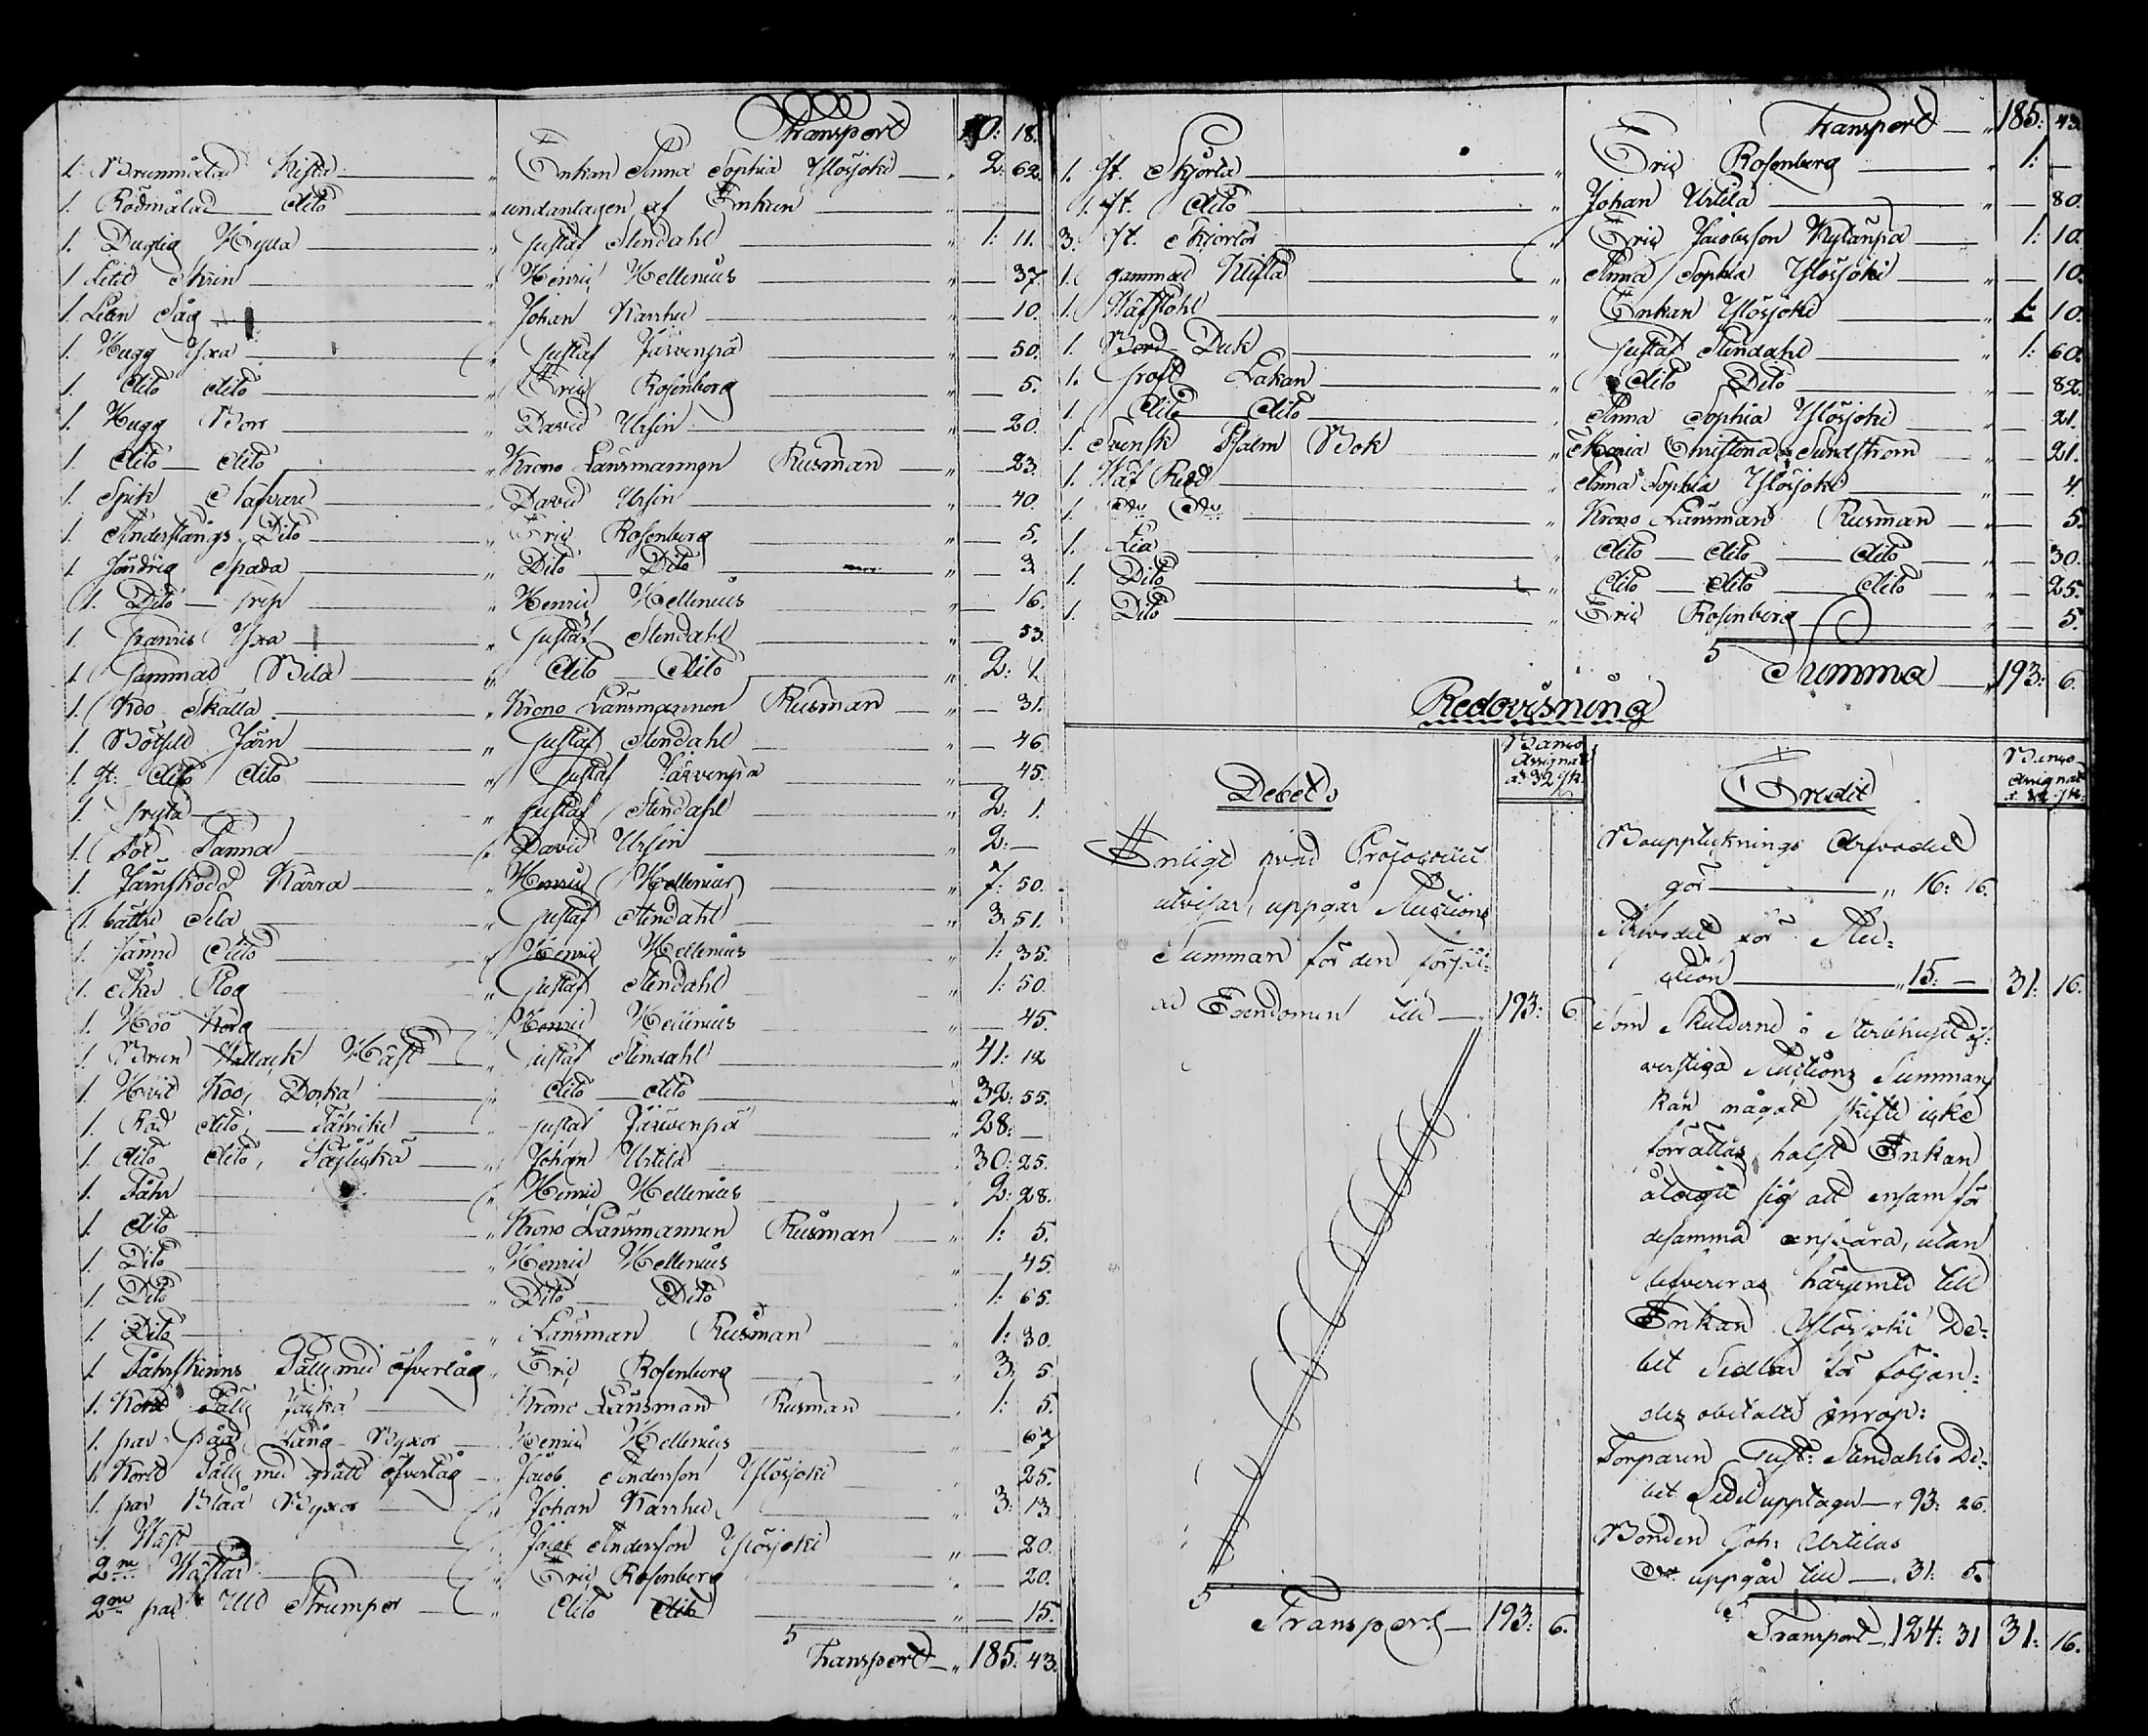 Transport 10: 18.
1. Brunmålad Kista " Enkan Anna Sophia Ylösjoki " 2: 62.
1. Rödmålad dito " undantagen af Enkan "
1. Duglig Hylla " Gustaf Stendahl " 1: 11.
1 Litet Skrin " Henric Hellenius " 37.
1. Liten Såg " Johan Karrhu " 10.
1. Hugg Yxa " Gustaf Järvenpä " 50.
1. dito dito " Eric Rosenberg " 5.
1. Hugg Borr " David Ursin " 20.
1. dito dito " Krono Länsmannen Rusman " 23.
1. Spik Nafvare " David Ursin " 40.
1. Anderstångs Dito " Eric Rosenberg " 5.
1. Jordrig Spada " Dito Dito " 3
1. Dito Grep " Henric Hellenius " 16.
1. Yxa " Gustaf Stendahl " 53.
1. Gammal Bila " dito dito " 2: 1.
1. Koo Skälla " Krono Länsmannen Rusman " 31.
1. Järn " Gustaf Stendahl " 46.
1. st: dito dito " Gustaf Järvenpä " 45.
1. Gryta " Gustaf Stendahl " 2: 1.
1. Panna " David Ursin " 2: —
1. Järnskodd Kärra " Henric Hellenius " 7: 50.
1. bättre Sela " Gustaf Stendahl " 3: 51.
1. sämre dito " Henric Hellenius " 1: 35.
1. Åker Plog " Gustaf Stendahl " 1: 50.
1. Höö Korg " Henric Hellenius " 45.
1. Brun Wallack Häst " Gustaf Stendahl " 41: 12
1. Hvit Koo, Doska " dito dito " 32: 55.
1. Röd dito, " Gustaf Järvenpä " 28: —
1. dito dito, " Johan Urtila " 30: 25.
1. Fåhr " Henric Hellenius " 2: 28.
1. dito " Krono Länsmannen Rusman " 1: 5.
1. Dito " Henric Hellenius " 45.
1. Dito " Dito Dito " 1: 65.
1. Dito " Länsman Rusman 1: 30.
1. Fåhrskinns Päls med öfverlåg " Eric Rosenberg 3: 5.
1. Kort Päls Jacka " Krono Länsman Rusman 1: 5.
1. par Lång Byxor Henric Hellenius 67
1. Kort Päls med grått öfverlåg Jacob Andersson Ylösjoki 25.
1. par Blåa Byxor " Johan Karrhu " 3: 13
1. Wäst " Jacob Andersson Ylösjoki " 20.
2ne Wästar " Eric Rosenberg 20.
2ne par Ull Strumpor " dito dito " 15.
Transport " 185: 43.
Transport " 185: 43.
1. st. Skjorta " Eric Rosenberg " 1: —
1. st. dito " Johan Urtila " 80.
3. st. Skjortor " Eric Jacobsson Kylänpä 1: 10.
1. gammal Kista " Anna Sophia Ylösjoki " 10.
1. Wäfstohl " Enkan Ylösjoki " 1: 10.
1. Bord Duk " Gustaf Stendahl " 1: 60.
1. groft Lakan " dito Dito " 82.
1. dito dito " Anna Sophia Ylösjoki " 21.
1. Svensk Psalm Bok " Maria Christina Sundström " 21.
1. Wäf Red " Anna Sophia Ylösjoki " 4.
1. do do " Krono Länsman Rusman " 5.
1. Lia " dito dito dito " 30.
1. Dito " dito dito dito " 25.
1. Dito " Eric Rosenberg " 5.
Summa " 193: 6.
Redovisning
Debet:
Banco Assignat a 32 st.
Enligt hvad Protocollet
utvisar, uppgår Auctions
Summan för den försål=
da Egendomen till " 193: 6.
Transport 193: 6.
Credit
Banco Assignat a 32 st.
Bouppteknings Arfvodet
gör " 16: 16.
Arfvodet för Auc=
tion " 15. — 31: 16.
Som Skulderne i Sterbhuset öf=
verstiga Auctions Summan
kan något skifte icke
förrättas, halst Enkan
ålagit sig att ensam för
desamma ansvara, utan
lefvereras härmed till
Enkan Ylösjoki De=
bet Sedlar för följan=
des obetalte inrop:
Torparen Gust: Stendahls De=
bet Sedel upptager " 93: 26.
Bonden Joh: Urtilas
Do uppgår till 31: 5.
Transport 124: 31 31: 16.